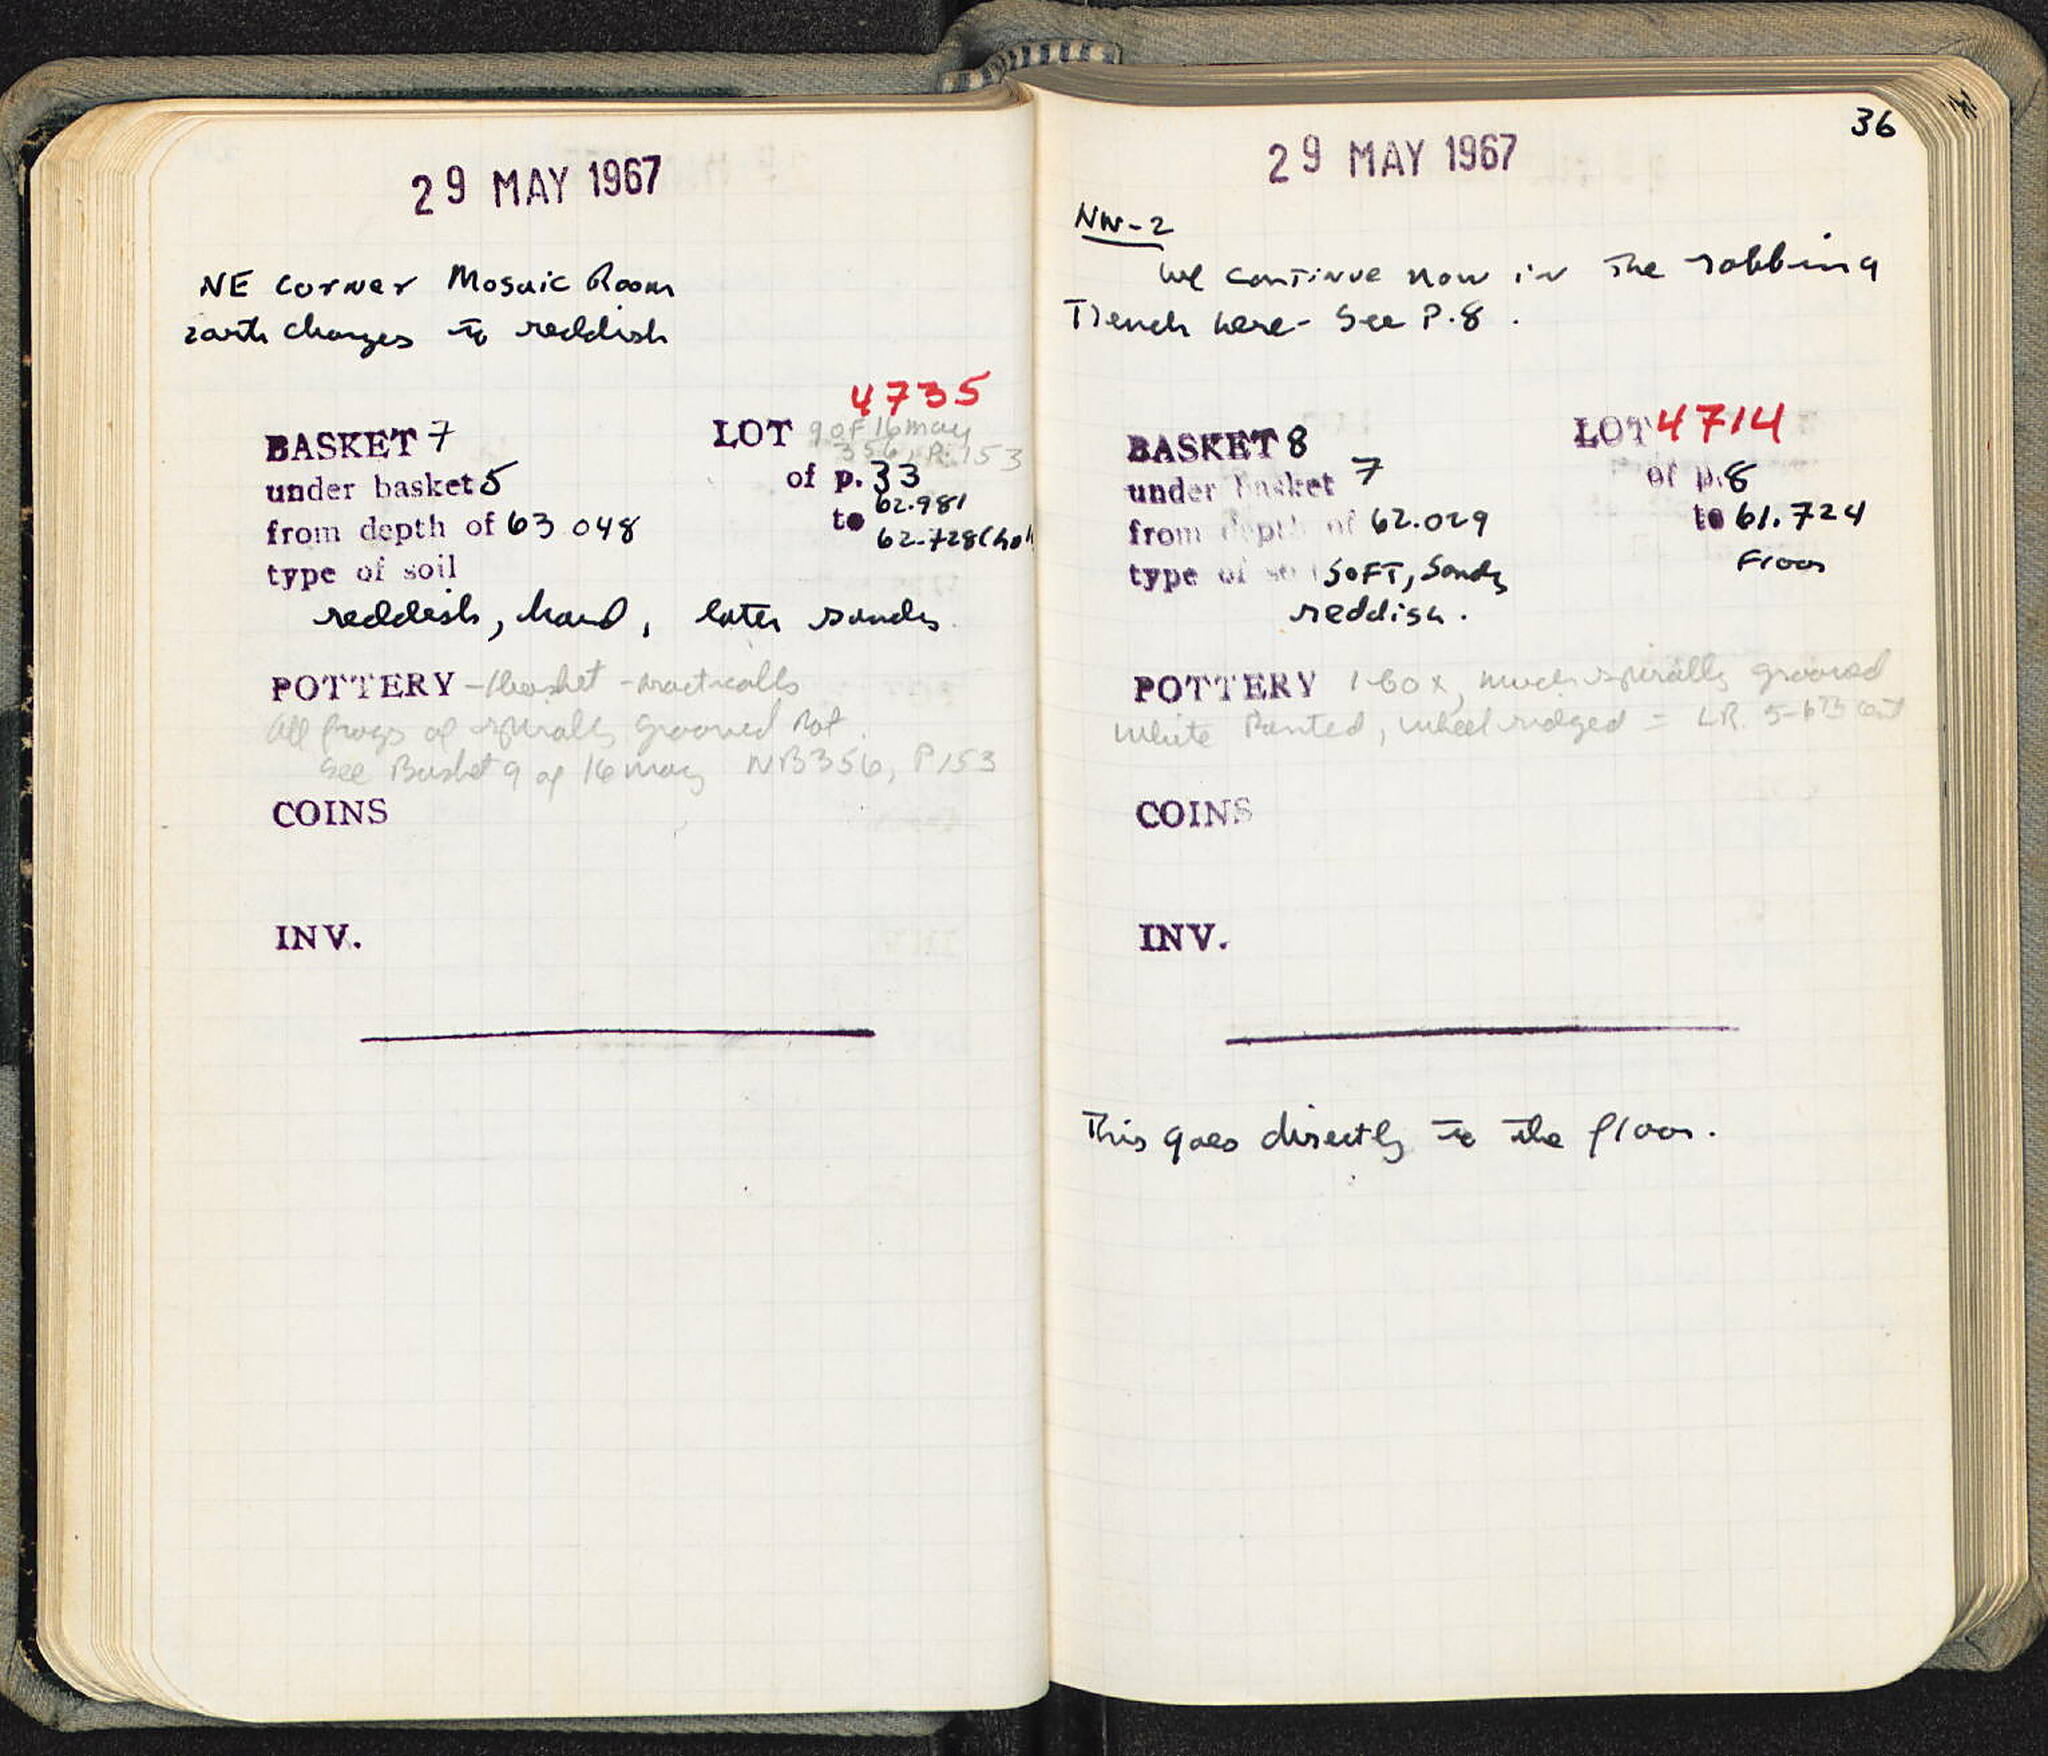 29 MAY 1967
NE Corner Mosaic Room
Earth changes to reddish
4735
BASKET 7 LOT 9 OF 16 May
356, P. 153
under basket 5 of p. 33
from depth of 63.048 to 62.981
62.728 (hol
type of soil
reddish, hard, later sandy
POTTERY - 1 basket - practically
All frags of spirally grooved Pot.
See Basket 9 of 16 May NB356, P153
COINS
INV.
36
29 MAY 1967
NW-2
We continue now in the robbing
Trench here - See P.8.
BASKET 8 LOT 4714
under basket 7 of p.8
from depth of 62.029 to 61.724
Floor
type of soil SOFT, Sandy
reddish.
POTTERY 1 box, much spirally grooved
White Painted, wheel ridged = LR. 5-6th cent
COINS
INV.
This goes directly to the floor.